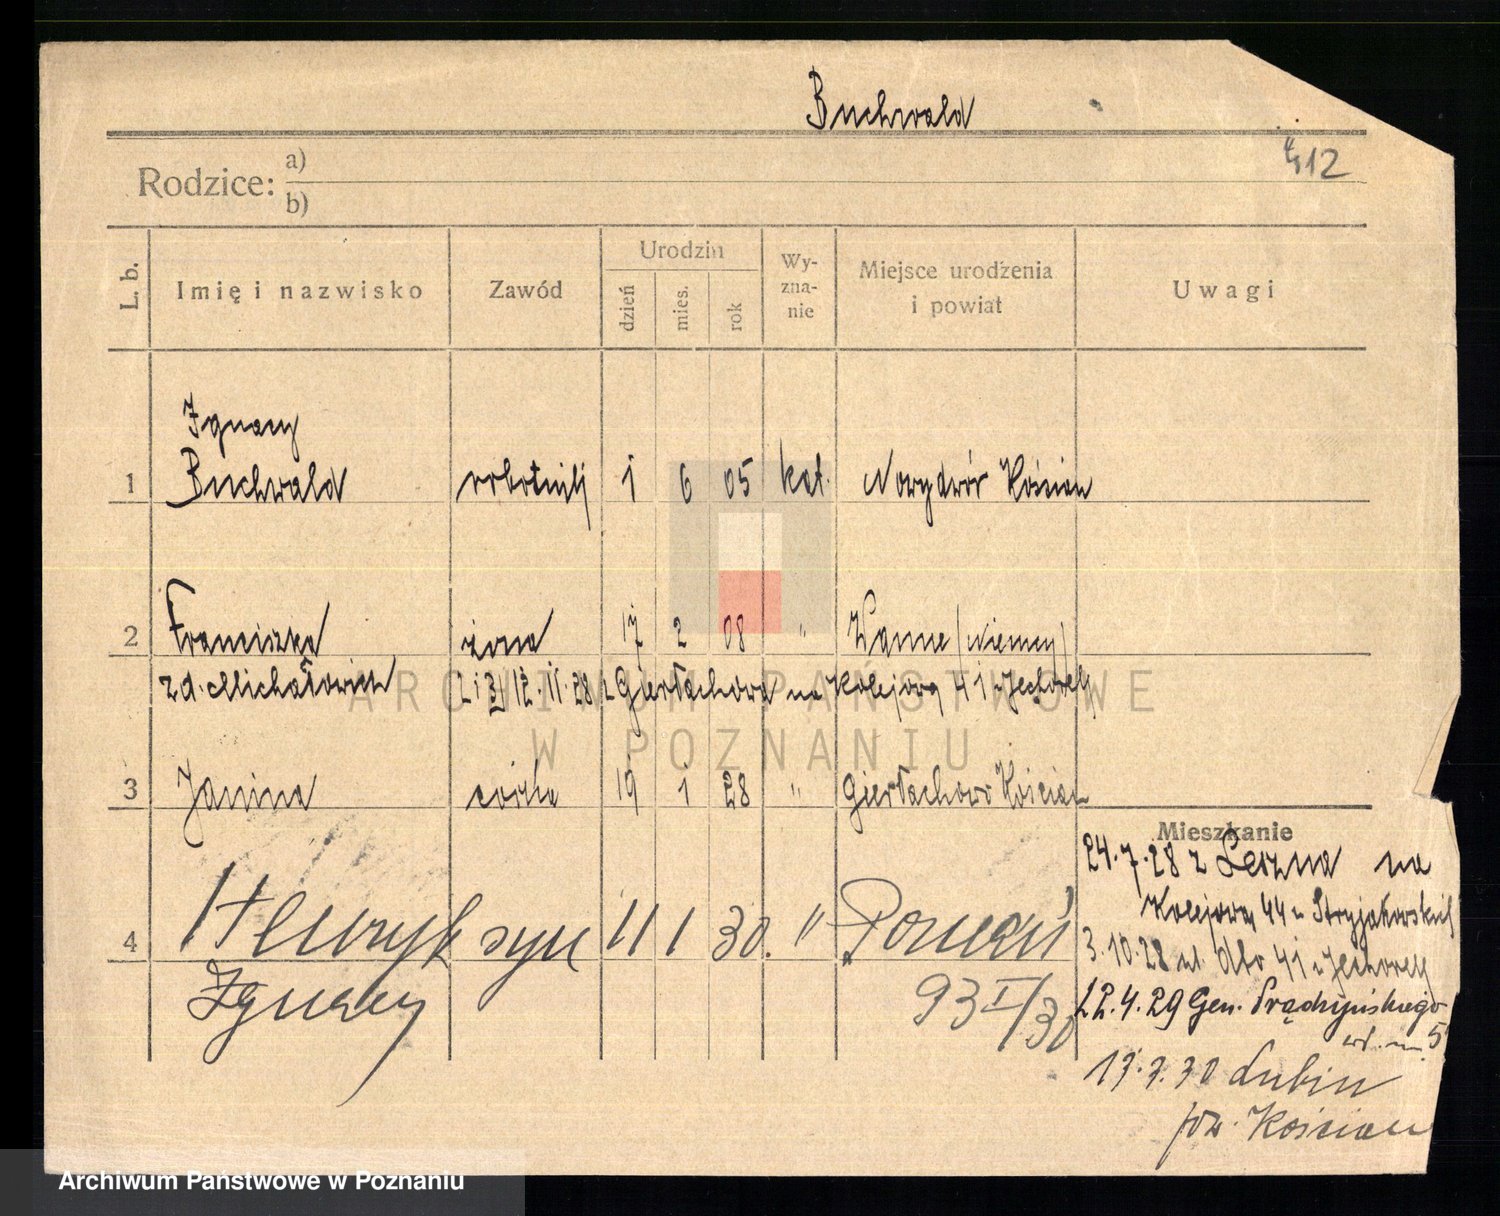 Buchwald
412
Rodzice: a)
b)
L. b.
Imię i nazwisko
Zawód
Urodzin
dzień
mies.
rok
Wy-
zna-
nie
Miejsce urodzenia
i powiat
Uwagi
Ignacy
1 Buchwald robotnik 1 6 05 kat. Nowydwór Kościan
2 Franciszka żona 17 2 08 " Wanne (Niemcy)
z d. Michałowicz 2 i 3/ 12. 11. 28 z Gierłachowa na Kolejową 41
3 Janina córka 19 1 28 " Gierłachowo Kościan
Mieszkanie
24.7.28 z Leszna na
Kolejową 44 u Stryjakowskich
4 Henryk syn 11 1 30. " Poznań
3.10.28 41
Ignacy
93 I/30
12.4.29 Gen. Prądzyńskiego
5
17.7.30 Lubin
pow. Kościan
ARCHIWUM PAŃSTWOWE
W POZNANIU
Archiwum Państwowe w Poznaniu